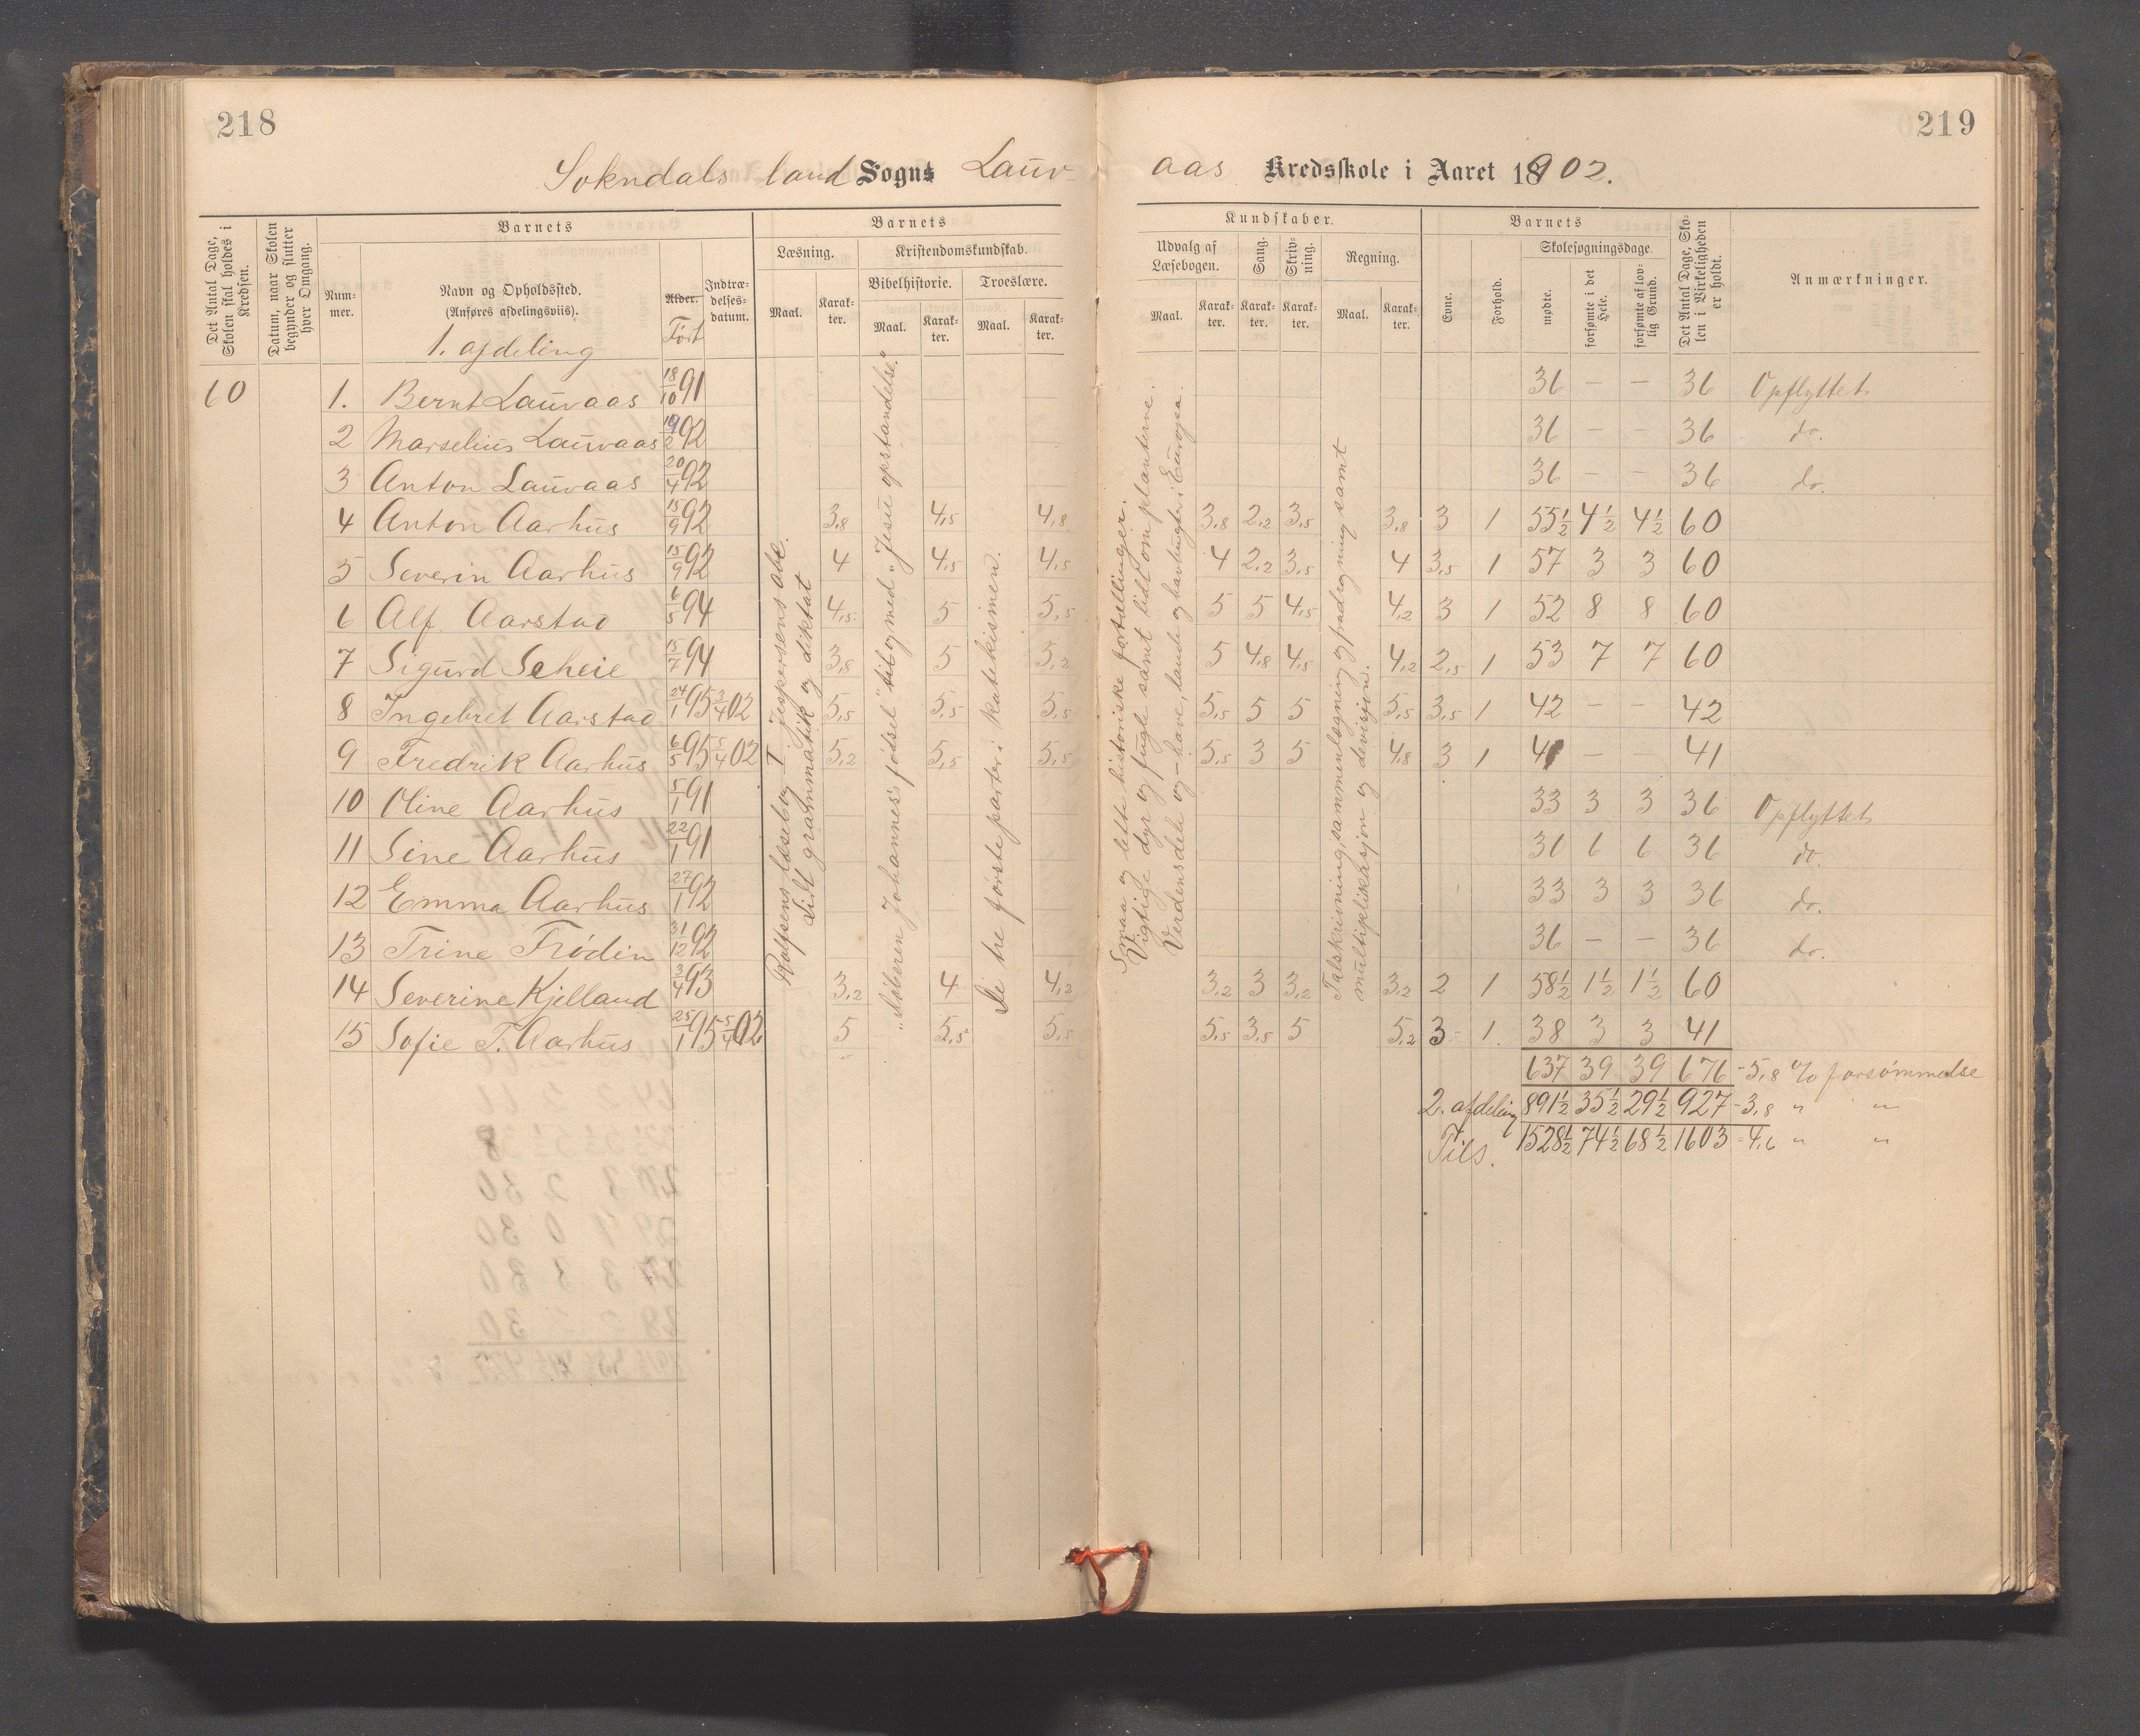 218
219
Sokndals land Sogns Lauv-
aas Kredsskole i Aaret 1902.
Det Antal Dage, Skolen skal holdes i Kredsen.
Datum, naar Skolen begynder og slutter hver Omgang.
Barnets
Num-mer.
Navn og Opholdssted.
(Anføres afdelingsviis).
1. afdeling
Alder.
Født
Indtræ-delses-datum.
Barnets
Læsning.
Maal.
Karak-ter.
Kristendomskundskab.
Bibelhistorie.
Maal.
Karak-ter.
Troeslære.
Maal.
Karak-ter.
Kundskaber.
Udvalg af Læsebogen.
Maal.
Karak-ter.
Sang.
Karak-ter.
Skriv-ning.
Karak-ter.
Regning.
Maal.
Karak-ter.
Barnets
Evne.
Forhold.
Skolesøgningsdage.
mødte.
forsømte i det Hele.
forsømte af lov-lig Grund.
Det Antal Dage, Sko-len i Virkeligheden er holdt.
Anmærkninger.
Rolfsens læsebog I. Jespersens abc.
Lidt grammatik og diktat
"Døberen Johannes's fødsel" til og med "Jesu opstandelse."
De tre første parter i katekismen.
Smaa og lette historiske fortællinger.
Vigtige dyr og fugle samt lidt om planterne.
Verdensdele og-have, lande og havbugter i Europa.
Talskrivning, sammenlægning og fradragning samt
multiplikasjon og devisjon.
60 1. Bernt Lauvaas 18/10 91 36 – – 36 Opflyttet
2 Marselius Lauvaas 19/2 92 36 – – 36 do.
3 Anton Lauvaas 20/4 92 36 – – 36 do.
4 Anton Aarhus 15/9 92 3,8 4,5 4,8 3,8 2,2 3,5 3,8 3 1 55½ 4½ 4½ 60
5 Severin Aarhus 15/9 92 4 4,5 4,5 4 2,2 3,5 4 3,5 1 57 3 3 60
6 Alf Aarstad 6/5 94 4,5 5 5,5 5 5 4,5 4,2 3 1 52 8 8 60
7 Sigurd Scheie 15/7 94 3,8 5 5,2 5 4,8 4,5 4,2 2,5 1 53 7 7 60
8 Ingebret Aarstad 24/1 95 3/4 02 5,5 5,5 5,5 5,5 5 5 5,5 3,5 1 42 – – 42
9 Fredrik Aarhus 6/5 95 5/4 02 5,2 5,5 5,5 5,5 3 5 4,8 3 1 41 – – 41
10 Oline Aarhus 5/1 91 33 3 3 36 Opflyttet
11 Sine Aarhus 22/1 91 30 6 6 36 do.
12 Emma Aarhus 27/1 92 33 3 3 36 do.
13 Trine Frödin 31/12 92 36 – – 36 do.
14 Severine Kjelland 3/4 93 3,2 4 4,2 3,2 3 3,2 3,2 2 1 58½ 1½ 1½ 60
15 Sofie T. Aarhus 25/1 95 5/4 02 5 5,5 5,5 5,5 3,5 5 5,2 3 1. 38 3 3 41
637 39 39 676 - 5,8 % forsømmelse
2. afdeling 891½ 35½ 29½ 927 - 3,8 " "
Tils. 1528½ 74½ 68½ 1603 - 4,6 " "